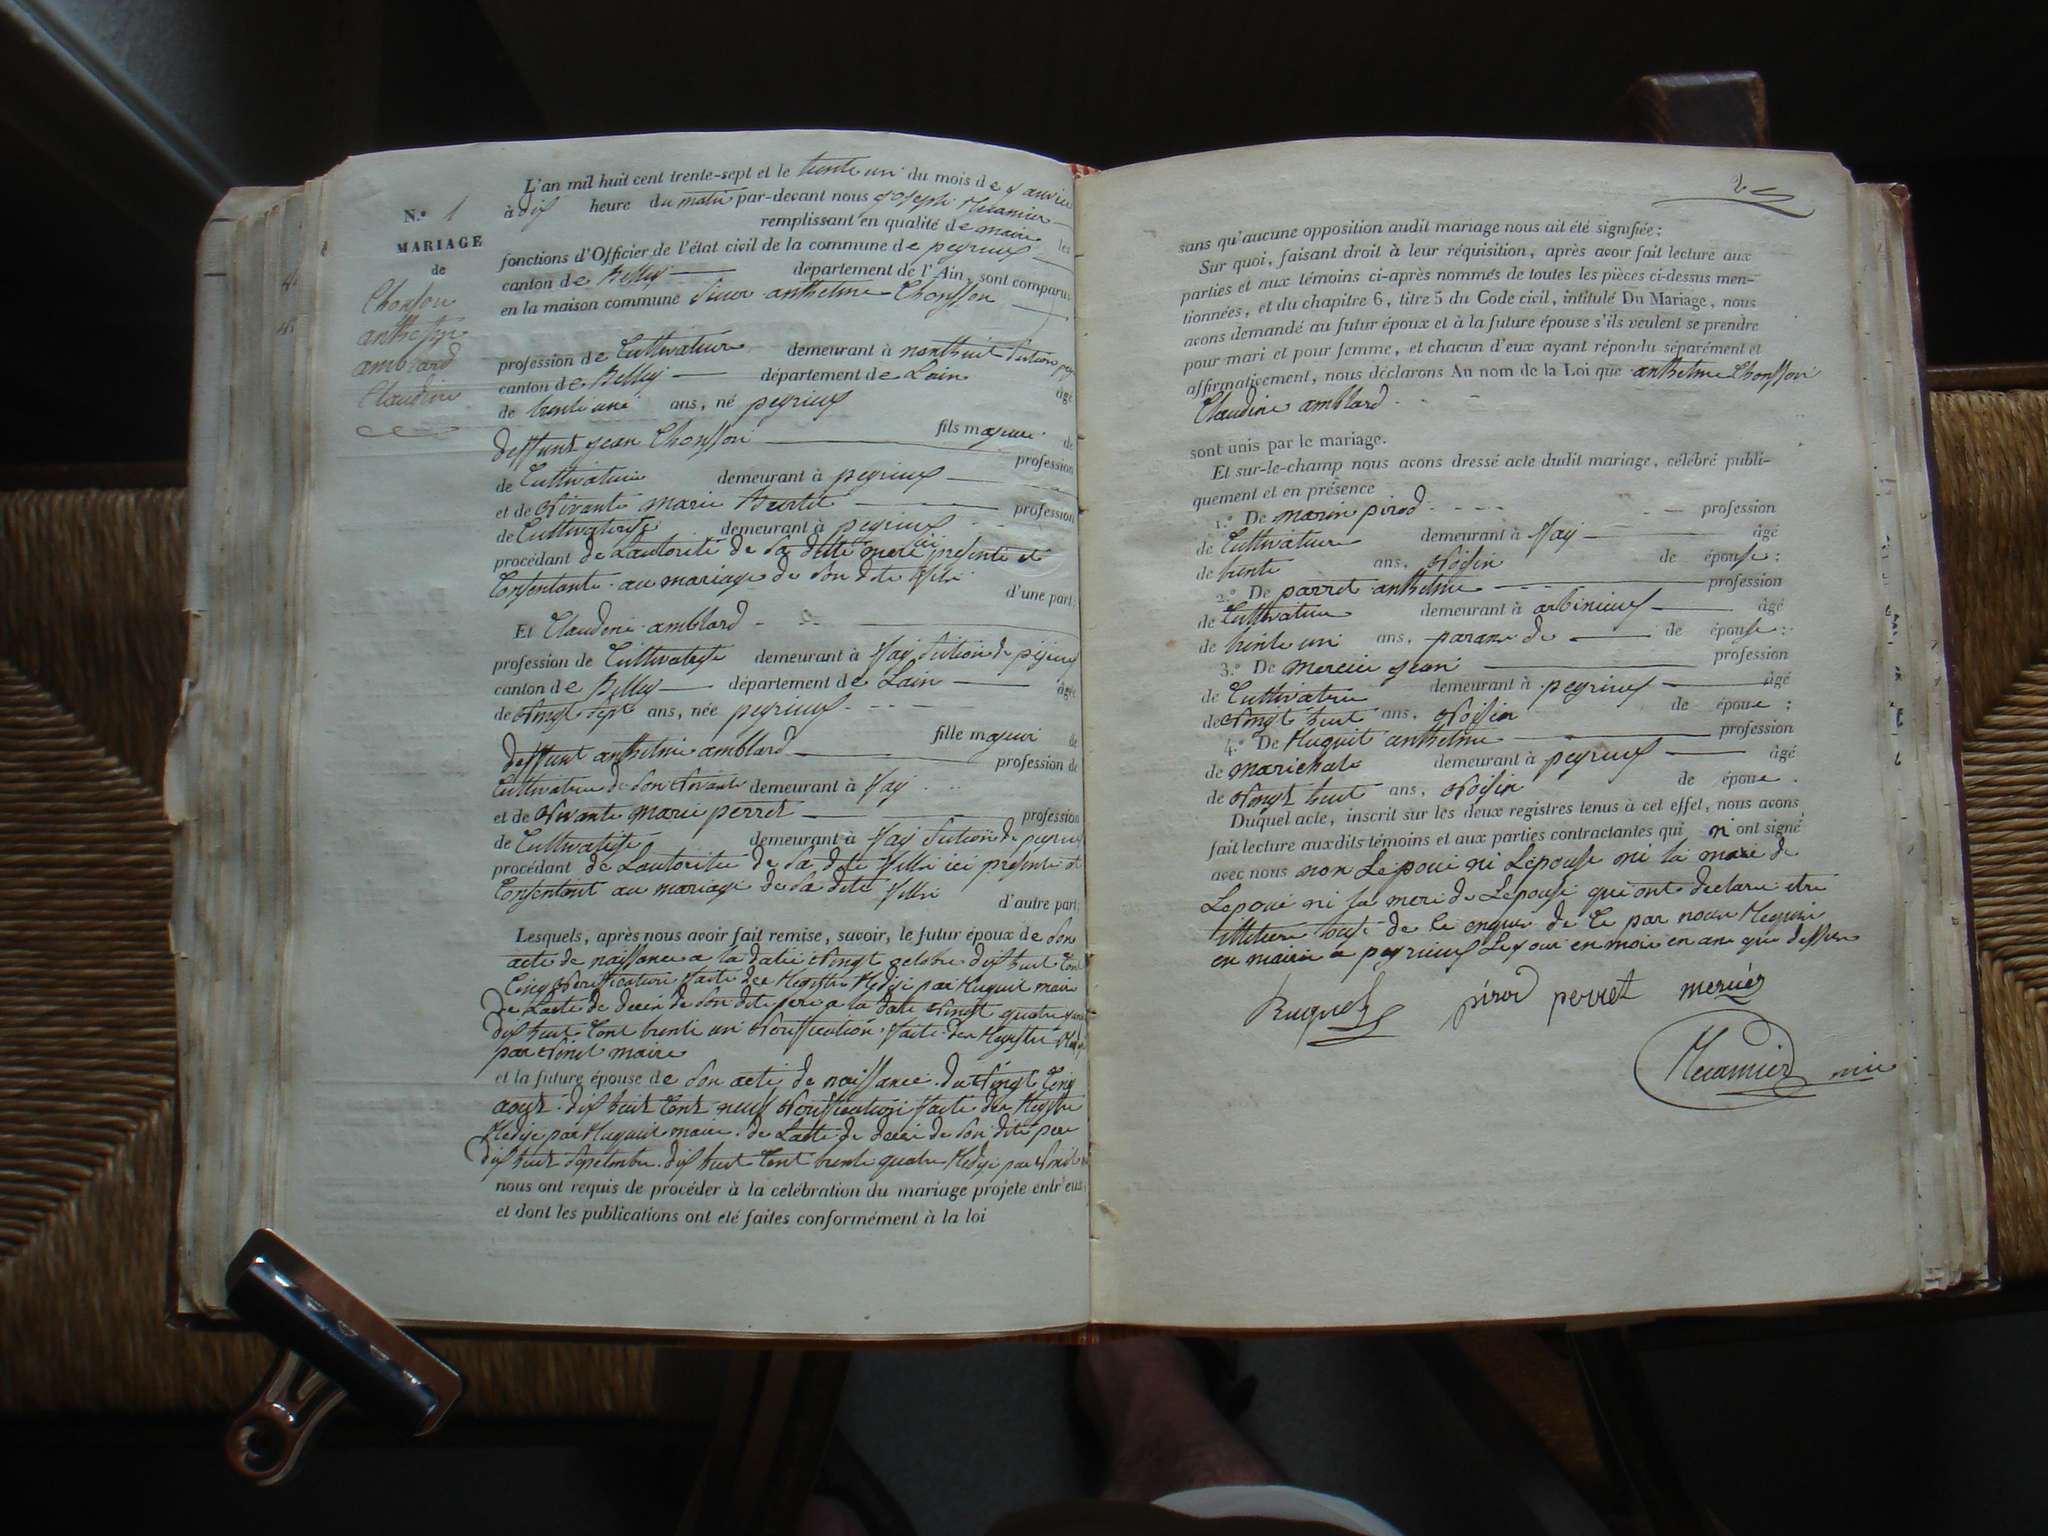 L'an mil huit cent trente-sept et le trente un du mois de janvier
N.º 1
à dix heure du matin par-devant nous joseph
remplissant en qualité de maire les
MARIAGE
de
Chonson
anthelme
amblard
Claudine
fonctions d'Officier de l'état civil de la commune de peyrieux
canton de Belley département de l'Ain, sont comparus
en la maison commune Sieur anthelme Chonsson
profession de Cultivateur demeurant à
canton de Belley département de Lain âgé
de trente une ans, né peyrieux
fils majeur de
deffunt jean Chonsson profession
de Cultivateur demeurant à peyrieux
et de vivante marie profession
de Cultivatrise demeurant à peyrieux
procédant de Lautorité de sa dite mere ici presente et
Consentante au mariage de son dite fils
d'une part;
Et Claudine amblard
profession de Cultivatrise demeurant à
canton de Belley département de Lain âgée
de vingt sept ans, née peyrieux
fille majeur de
deffunt anthelme amblard profession de
Cultivateur de son vivant demeurant à
et de vivante marie perret profession
de Cultivatise demeurant à
procédant de Lautorité de sa dite fille ici presente et
Consentant au mariage de sa dite fille
d'autre part;
Lesquels, après nous avoir fait remise, savoir, le futur époux de son
acte de naissance a la date vingt octobre dix huit Cent
Cinq verification faite des Registre Redige par Huguit maire
De Lacte de deces de son dite pere a la date vingt quatre
dix huit Cent trente un verification faite des Registre
par maire
et la future épouse de son acte de naissance du vingt Cinq
aout dix huit Cent neuf verification faite des Registre
Redige par Huguit maire de Lacte de deces de son dite pere
dix huit septembre dix huit Cent trente quatre Redige par
nous ont requis de procéder à la celébration du mariage projeté entr'eux,
et dont les publications ont eté faites conformément à la loi
2
sans qu'aucune opposition audit mariage nous ait été signifiée;
Sur quoi, faisant droit à leur réquisition, après avoir fait lecture aux
parties et aux témoins ci-après nommés de toutes les pièces ci-dessus men-
tionnées, et du chapitre 6, titre 5 du Code civil, intitulé Du Mariage, nous
avons demandé au futur époux et à la future épouse s'ils veulent se prendre
pour mari et pour femme, et chacun d'eux ayant répondu séparément et
affirmativement, nous déclarons Au nom de la Loi que anthelme Chonsson
Claudine amblard
sont unis par le mariage.
Et sur-le-champ nous avons dressé acte dudit mariage, célébré publi-
quement et en présence
1.º De marin pirod profession
de Cultivateur demeurant à âgé
de trente ans, voisin de épouse:
2.º De parret anthelme profession
de Cultivateur demeurant à arbinieux âgé
de trente un ans, de épouse:
3.º De mercier jean profession
de Cultivateur demeurant à peyrieux âgé
de vingt huit ans, voisin de époue;
4.º De Huguit anthelme profession
de marichale demeurant à peyrieux âgé
de vingt huit ans, voisin de époue.
Duquel acte, inscrit sur les deux registres tenus à cet effet, nous avons
fait lecture auxdits témoins et aux parties contractantes qui n ont signé
avec nous non Lepoue ni Lepouse ni la mere de
Lepoue ni la mere de Lepouse qui ont declare etre
illitere de ce enquis de Ce par nous
en mairie a peyrieux Les jour en mois en ans que dessus
Huguet pirod perret mercier